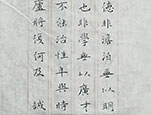 德非澹泊無以明
也非學無以廣才
不能治性年與時
廬將復何及 誡